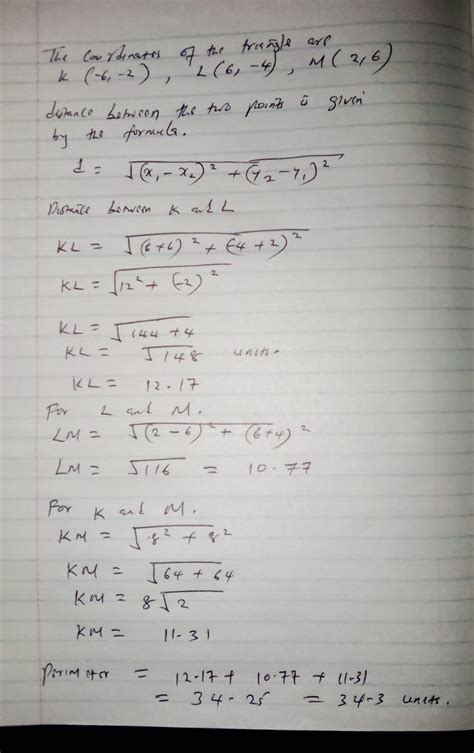 The coordinates of the triangle are
K (-6, -2) , L (6, -4) , M (2, 6)
distance between the two points is given
by the formula.
d = √(x₁ - x₂)² + (y₂ - y₁)²
Distance between K and L
KL = √(6+6)² + (-4 + 2)²
KL = √12² + (-2)²
KL = √144 + 4
KL = √148 units.
KL = 12.17
For L and M.
LM = √(2 - 6)² + (6+4)²
LM = √116 = 10.77
For K and M.
KM = √8² + 8²
KM = √64 + 64
KM = 8√2
KM = 11.31
Perimeter = 12.17 + 10.77 + 11.31
= 34.25 = 34.3 units.